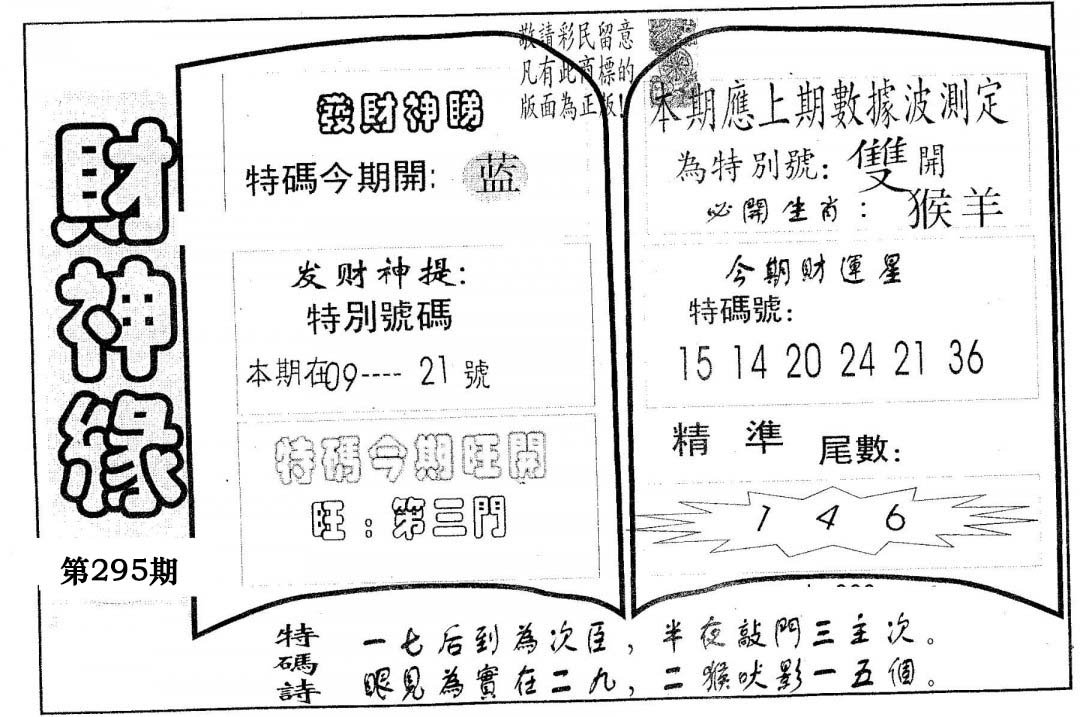 敬請彩民留意
凡有此商標的
版面為正版!
財神緣
第295期
發財神睇
特碼今期開: 蓝
发财神提:
特別號碼
本期在09---- 21號
特碼今期旺開
旺:第三門
本期應上期數據波測定
為特別號: 雙開
必開生肖: 猴羊
今期財運星
特碼號:
15 14 20 24 21 36
精準 尾數:
1 4 6
特碼詩
一七后到為次臣,半夜敲門三主次。
眼見為實在二九,二猴吠影一五個。